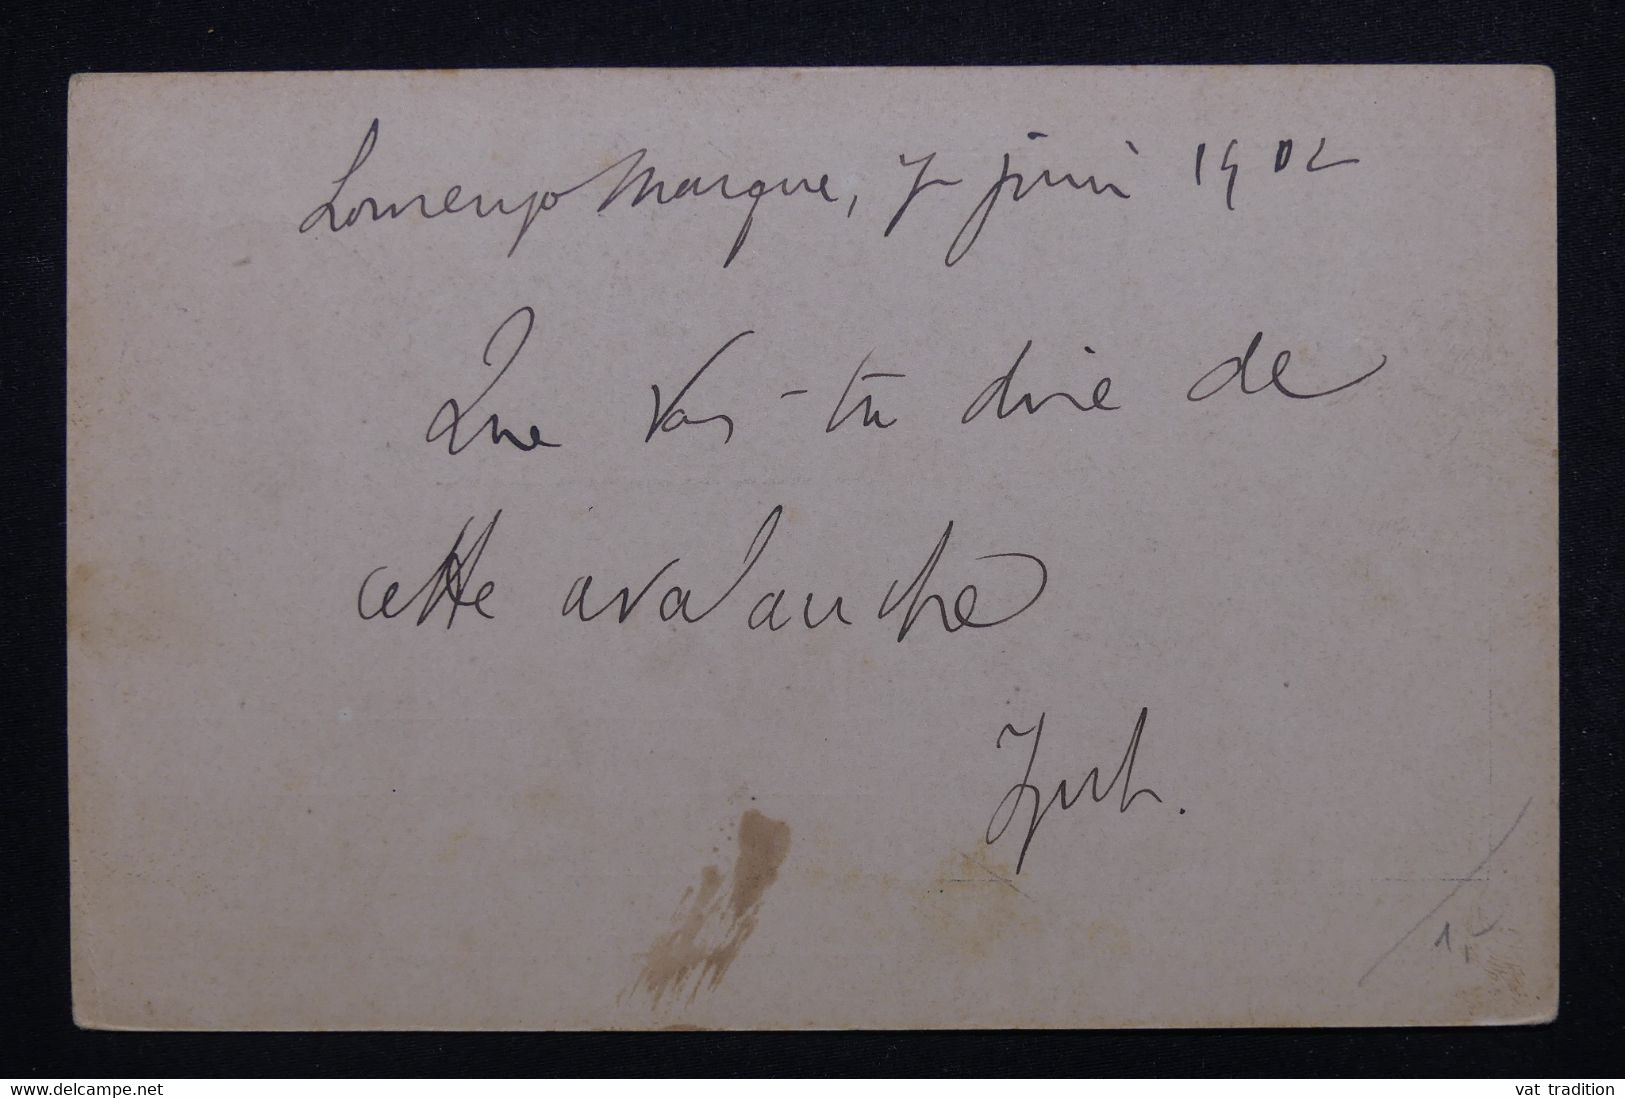 Lourenço Marque, 7 juin 1902
Que vas-tu dire de
cette avalanche
1,-
www.delcampe.net
vat tradition